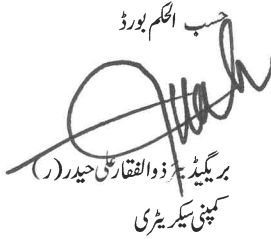 حسب الحکم بورڈ
بریگیڈیئر ذوالفقار علی حیدر (ر)
کمپنی سیکریٹری